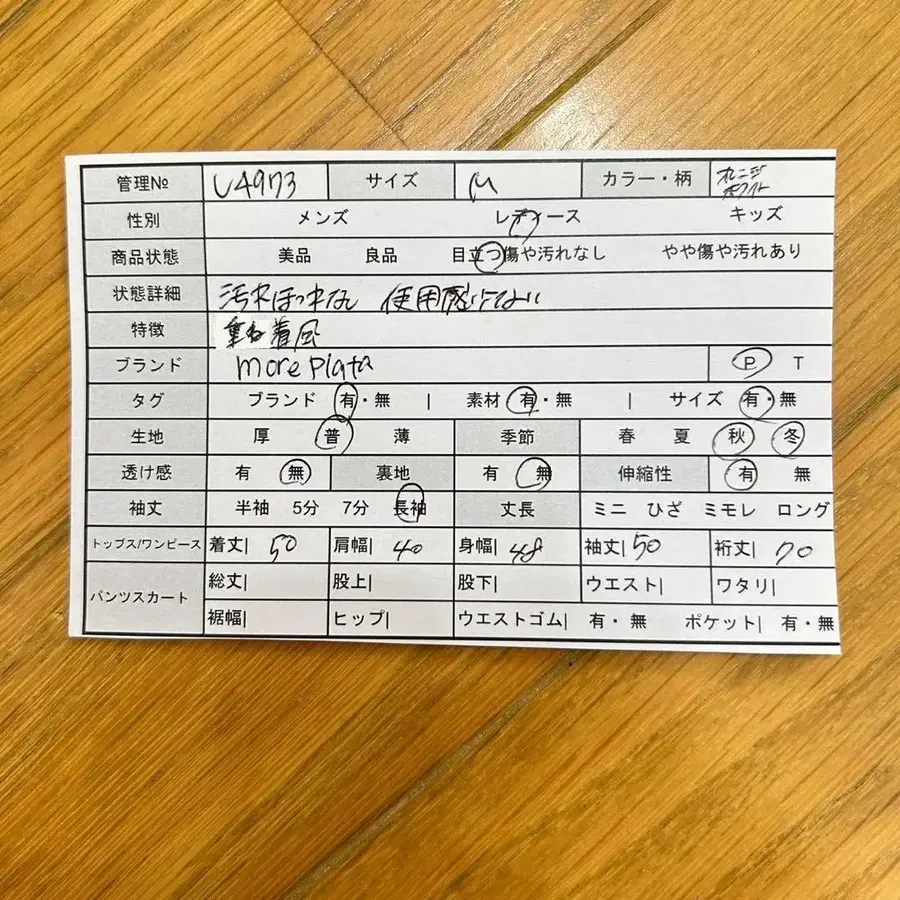 管理№ U4973 サイズ M カラー・柄 オレンジ ホワイト
性別 メンズ レディース キッズ
商品状態 美品 良品 目立つ傷や汚れなし やや傷や汚れあり
状態詳細 汚れほつれなし 使用感少ない
特徴 重ね着風
ブランド more plata P T
タグ ブランド 有・無 | 素材 有・無 | サイズ 有・無
生地 厚 普 薄 季節 春 夏 秋 冬
透け感 有 無 裏地 有 無 伸縮性 有 無
袖丈 半袖 5分 7分 長袖 丈長 ミニ ひざ ミモレ ロング
トップス/ワンピース 着丈| 50 肩幅| 40 身幅| 48 袖丈| 50 裄丈| 70
パンツスカート 総丈| 股上| 股下| ウエスト| ワタリ|
裾幅| ヒップ| ウエストゴム| 有・無 ポケット| 有・無